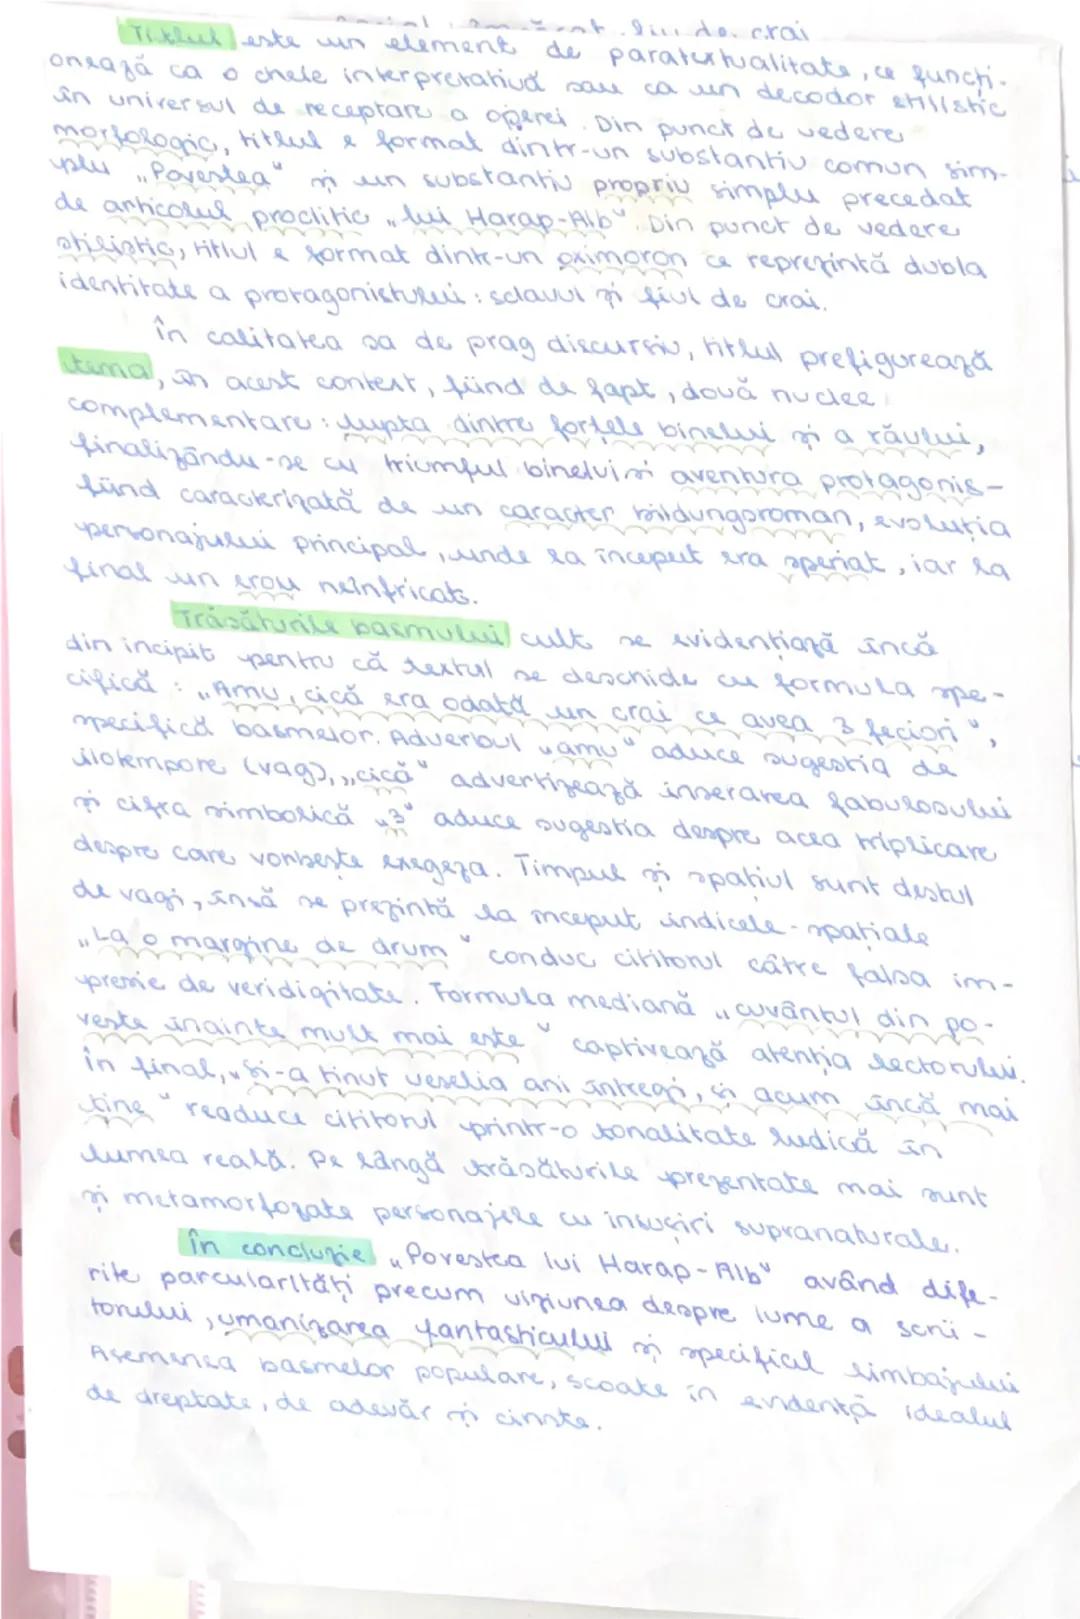 de crai
Titlul este un element de paratextualitate, ce funcți-
onează ca o cheie interpretativă sau ca un decodor stilistic
în universul de receptare a operei. Din punct de vedere
morfologic, titlul e format dintr-un substantiv comun sim-
plu „Povestea" și un substantiv propriu simplu precedat
de articolul proclitic „lui Harap-Alb". Din punct de vedere
stilistic, titlul e format dintr-un oximoron ce reprezintă dubla
identitate a protagonistului: sclavul și fiul de crai.
În calitatea sa de prag discursiv, titlul prefigurează
tema, în acest context, fiind de fapt, două nuclee
complementare: lupta dintre forțele binelui și a răului,
finalizându-se cu triumful binelui și aventura protagonis-
fiind caracterizată de un caracter bildungsroman, evoluția
personajului principal, unde la început era speriat, iar la
final un erou neînfricat.
Trăsăturile basmului cult se evidențiază încă
din incipit pentru că textul se deschide cu formula spe-
cifică: „Amu, cică era odată un crai ce avea 3 feciori",
specifică basmelor. Adverbul „amu" aduce sugestia de
ilotempore (vag), „cică" advertizează inserarea fabulosului
și cifra simbolică „3" aduce sugestia despre acea triplicare
despre care vorbește exegeza. Timpul și spațiul sunt destul
de vagi, însă se prezintă la început indicele-spațiale
„La o margine de drum" conduc cititorul către falsa im-
presie de veridigitate. Formula mediană „cuvântul din po-
veste înainte mult mai este" captivează atenția lectorului.
În final, „Și-a ținut veselia ani întregi, și acum încă mai
ține" readuce cititorul printr-o tonalitate ludică în
lumea reală. Pe lângă trăsăturile prezentate mai sunt
și metamorfozate personajele cu însușiri supranaturale.
În concluzie „Povestea lui Harap-Alb" având dife-
rite parcularități precum viziunea despre lume a scrii-
torului, umanizarea fantasticului și specificul limbajului
Asemenea basmelor populare, scoate în evidență idealul
de dreptate, de adevăr și cinste.